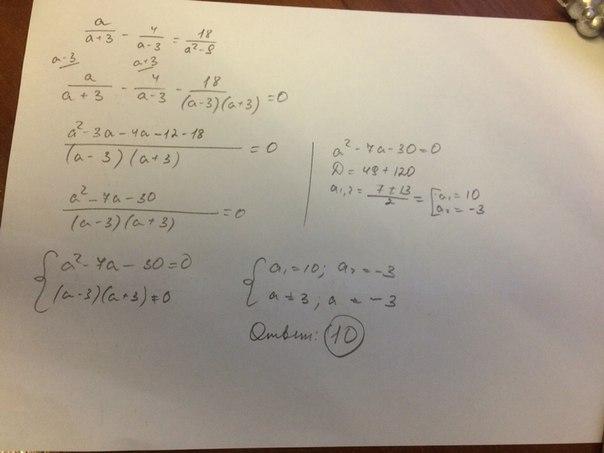 a/(a+3) - 4/(a-3) = 18/(a²-9)
a-3 a+3
a/(a+3) - 4/(a-3) - 18/((a-3)(a+3)) = 0
(a²-3a-4a-12-18)/((a-3)(a+3)) = 0
(a²-7a-30)/((a-3)(a+3)) = 0
a²-7a-30=0
D=49+120
a₁,₂ = (7±13)/2 = [a₁=10
a₂=-3
{a²-7a-30=0
(a-3)(a+3)≠0
{a₁=10; a₂=-3
a≠3; a≠-3
Ответ: 10